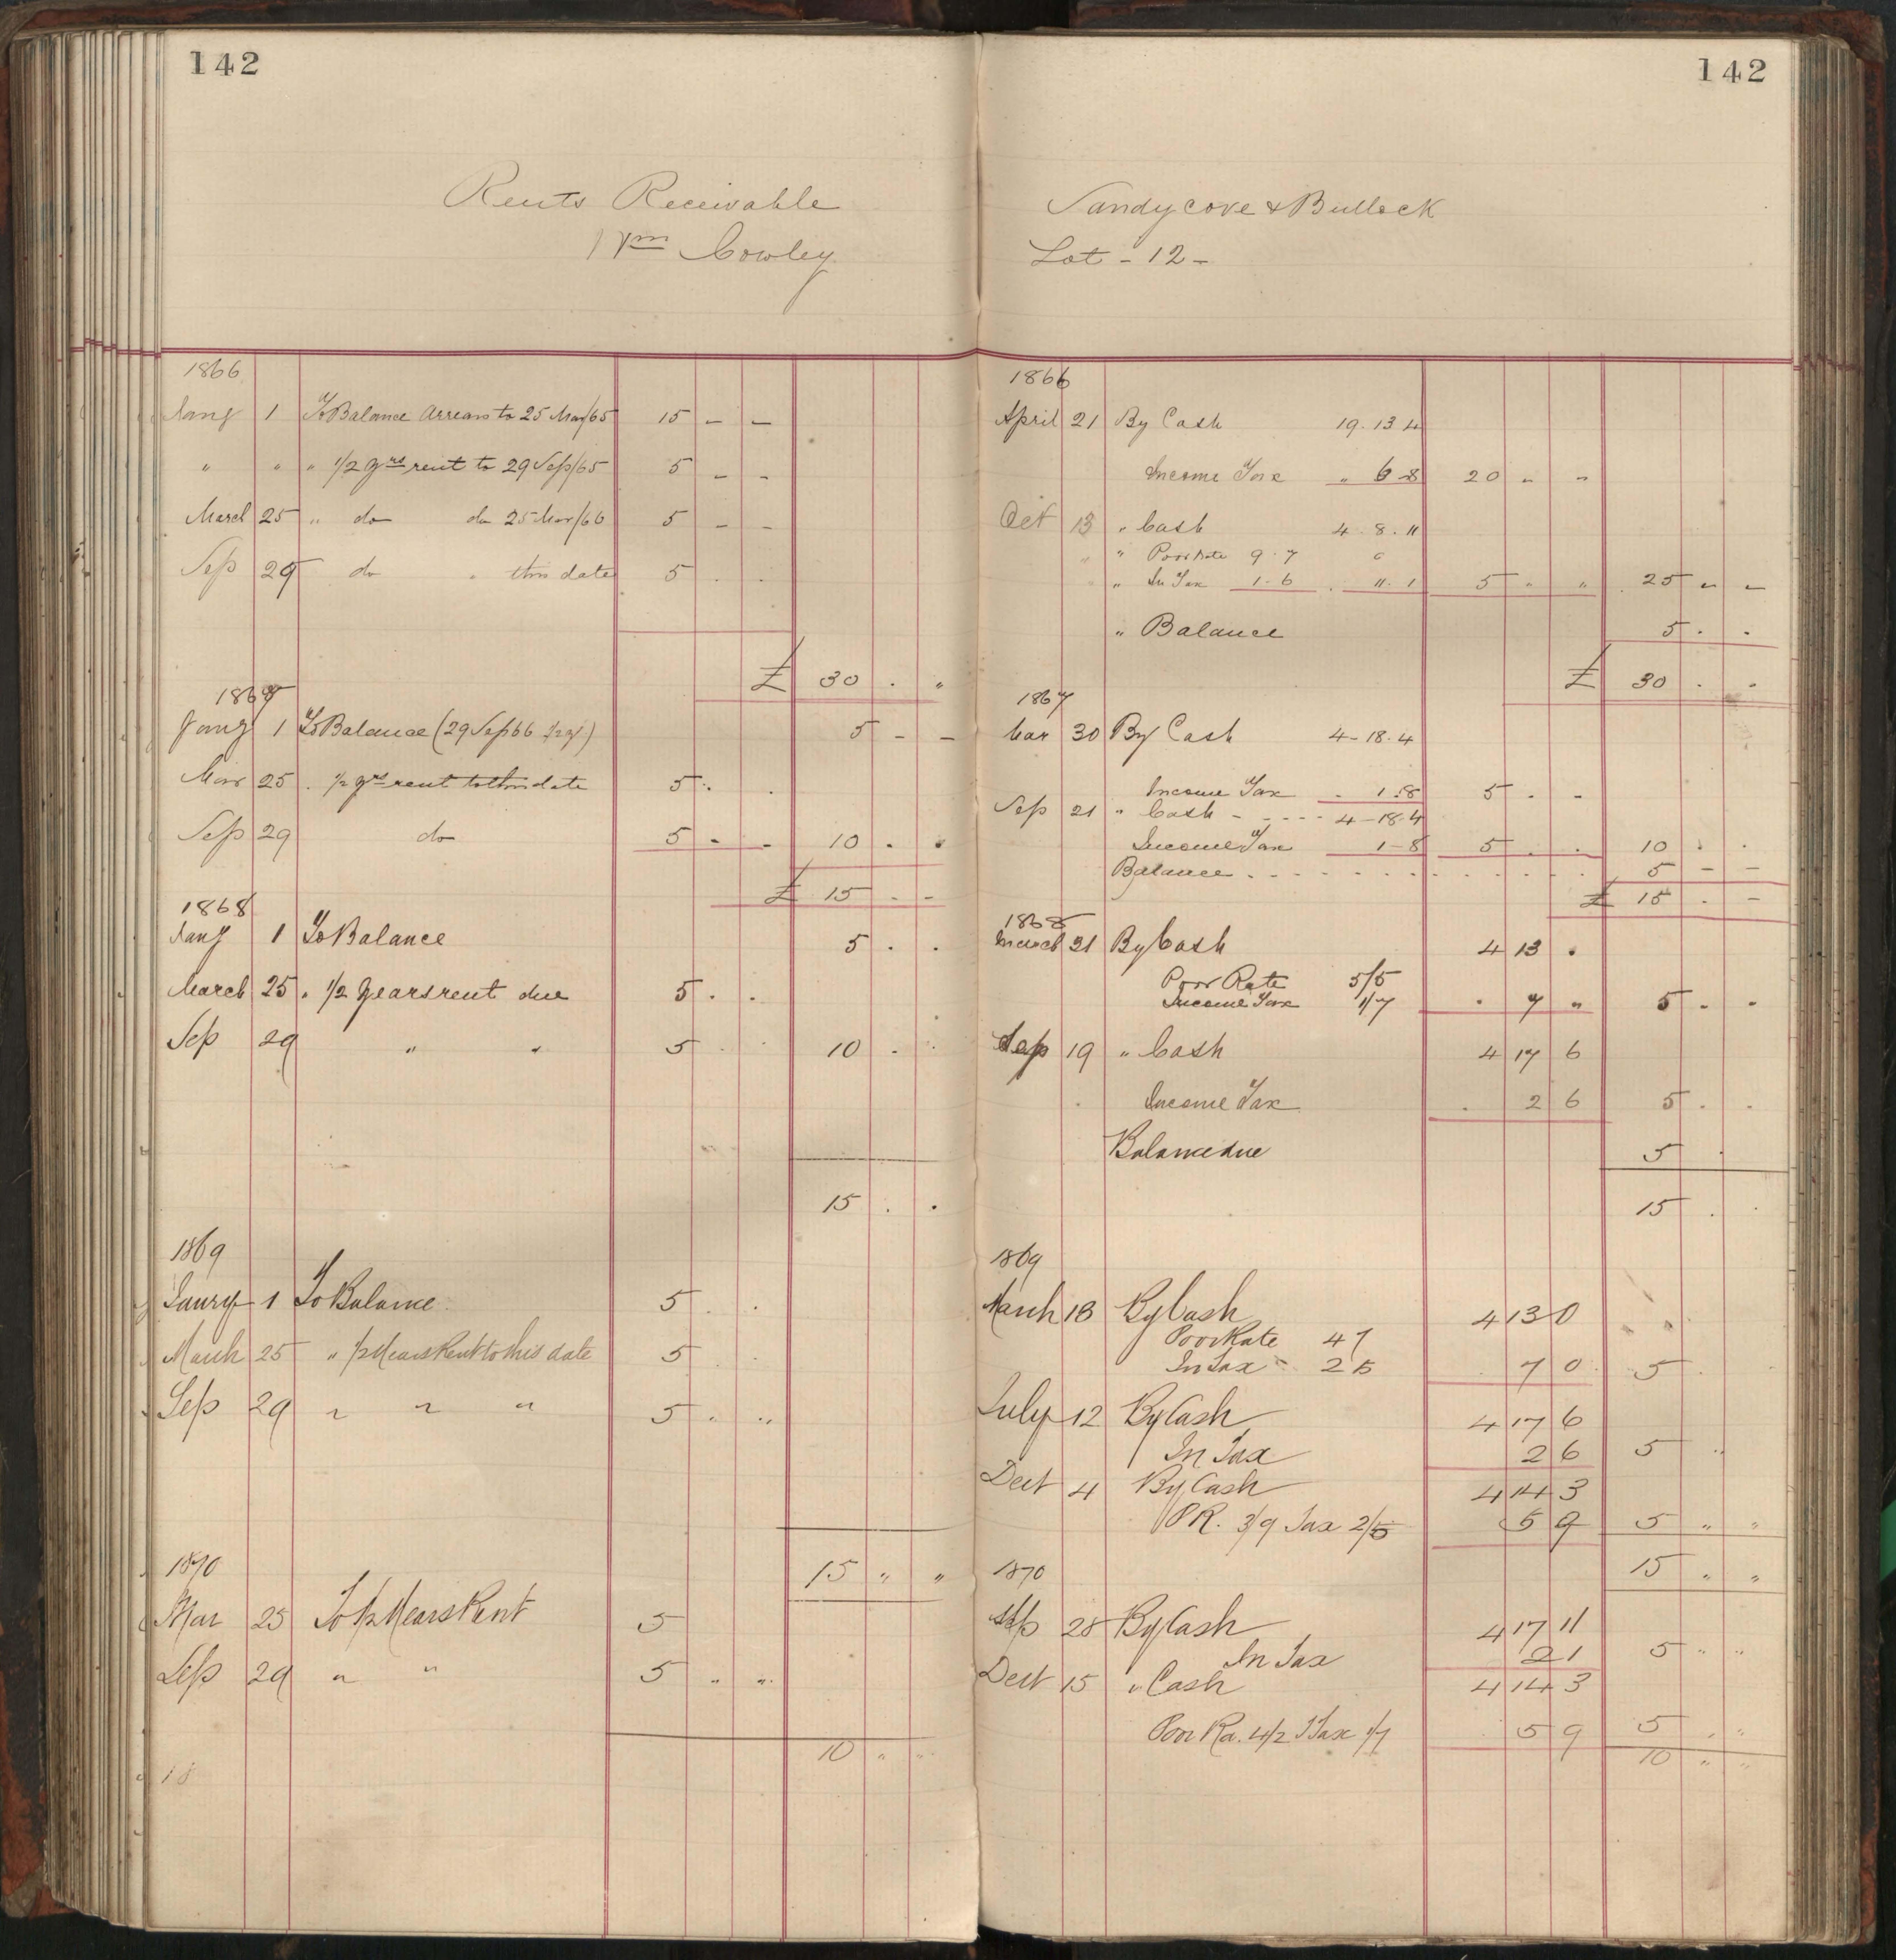 142
Rents Receivable
Wm Cowley
1866
Jany 1 To Balance Arrears to 25 Mar/65 15 - -
" " " 1/2 yrs rent to 29 Sep/65 5 - -
March 25 " do do 25 Mar/66 5 - -
Sep 29 do " this date 5 . .
£ 30 . "
1867
Jany 1 To Balance (29 Sep 66 1/2 y) 5 - -
Mar 25 . 1/2 yrs rent to this date 5 . .
Sep 29 do 5 - - 10 . .
£ 15 - -
1868
Jany 1 To Balance 5 . .
March 25 " 1/2 years rent due 5 . .
Sep 29 " " 5 . . 10 . .
15 . .
1869
Janry 1 To Balance 5 . .
March 25 " 1/2 Years Rent to this date 5 . .
Sep 29 " " " 5 . "
15 " "
1870
Mar 25 To 1/2 Years Rent 5
Sep 29 " " 5 " "
10 " "
18
142
Sandycove & Bullock
Lot - 12 -
1866
April 21 By Cash 19. 13 4
Income Tax " 6 8 20 " "
Oct 13 " Cash 4. 8. 11
" " Poor Rate 9. 7
" In Tax 1. 6 . 11. 1 5 " " 25 - -
" Balance 5 . .
£ 30 . .
1867
Mar 30 By Cash 4 - 18. 4
Income Tax - 1. 8 5 . -
Sep 21 " Cash - - - - - 4 - 18. 4
Income Tax 1 - 8 5 . . 10 . .
Balance . . . . . . . . . . 5 - -
£ 15 . -
1868
March 21 By Cash 4 13 .
Poor Rate 5/5
Income Tax 1/7 . 7 " 5 . .
Sep 19 " Cash 4 17 6
Income Tax . 2 6 5 . .
Balance due 5 .
15 . .
1869
March 18 By Cash 4 13 0
Poor Rate 4 7
In Tax 2 5 7 0 5 .
July 12 By Cash 4 17 6
In Tax 2 6 5 "
Dect 4 By Cash 4 14 3
P R. 3/9 Tax 2/ 5 9 5 " "
15 " "
1870
Sep 28 By Cash 4 17 11
In Tax 2 1 5 " "
Dect 15 " Cash 4 14 3
Poor Ra. 4/2 I Tax 1/7 5 9 5 " "
10 " "